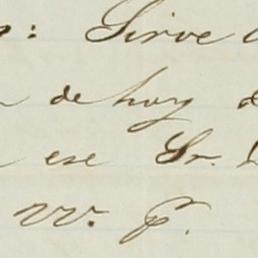 : Sirve
de hoy
ese Sr.
VV. p.